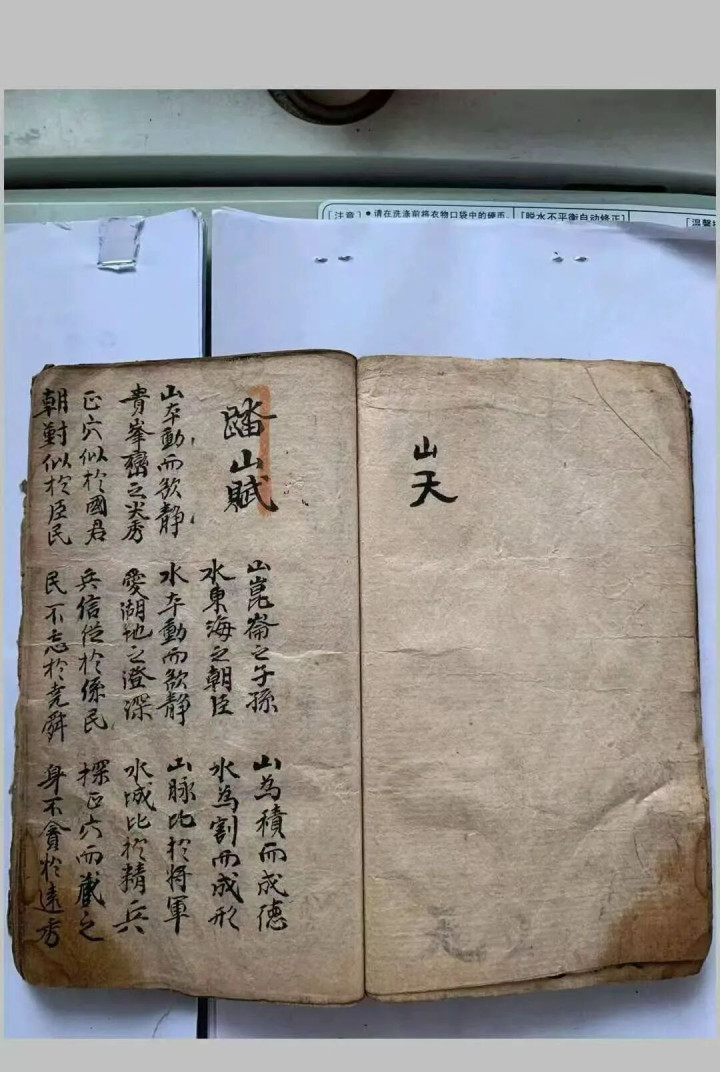 [注意] ●请在洗涤前将衣物口袋中的硬币、
[脱水不平衡自动修正]
[温馨
山天
踏山賦
山崑崙之子孫 山為積而成德
水東海之朝臣 水為割而成形
山夲動而欲靜 水夲動而欲靜 山脉比於將軍
貴峯巒之尖秀 愛湖地之澄深 水城比於精兵
正穴似於國君 兵信從於係民 探正穴而藏之
朝對似於臣民 民不志於堯舜 身不貪於遠秀